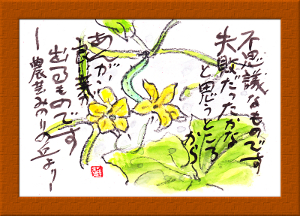 不思議なものです
失敗だったかな
と思うところ
から
あんが
出るものです
ー農芸みのりの丘よりー